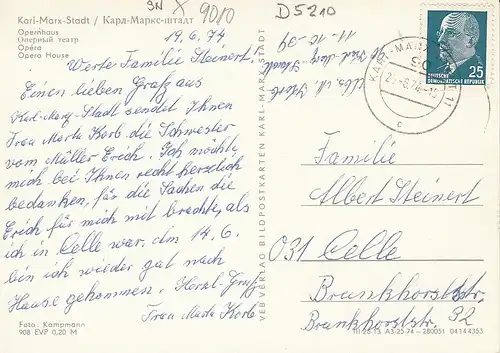 Karl-Marx-Stadt / Карл-Маркс-штадт
Opernhaus
Оперный театр
Opéra
Opera House
9N X 9010
D 5210
19.6.74
Werte Familie Steinert.
Einen lieben Gruß aus
Karl-Marx-Stadt sendet Ihnen
Frau Marta Korb die Schwester
vom Müller Erich. Ich möchte
mich bei Ihnen recht herzlich
bedanken, für die Sachen die
Erich für mich mit brachte, als
ich in Celle war, dm 14.6.
bin ich wieder gut nach
Hause gekommen. Herzl. Gruß
Frau Marta Korb
Foto: Kampmann
908 EVP 0,20 M
VEB VERLAG BILDPOSTKARTEN KARL-MARX-STADT
KARL-MARX-STADT 11
90
-6.74
c
DEUTSCHE
DEMOKRATISCHE REPUBLIK
25
Familie
Albert Steinert
031 Celle
Brunkhorststr.
Brunkhorststr. 32
III-25-13 A3-25-74 - 280051 04 14 4353